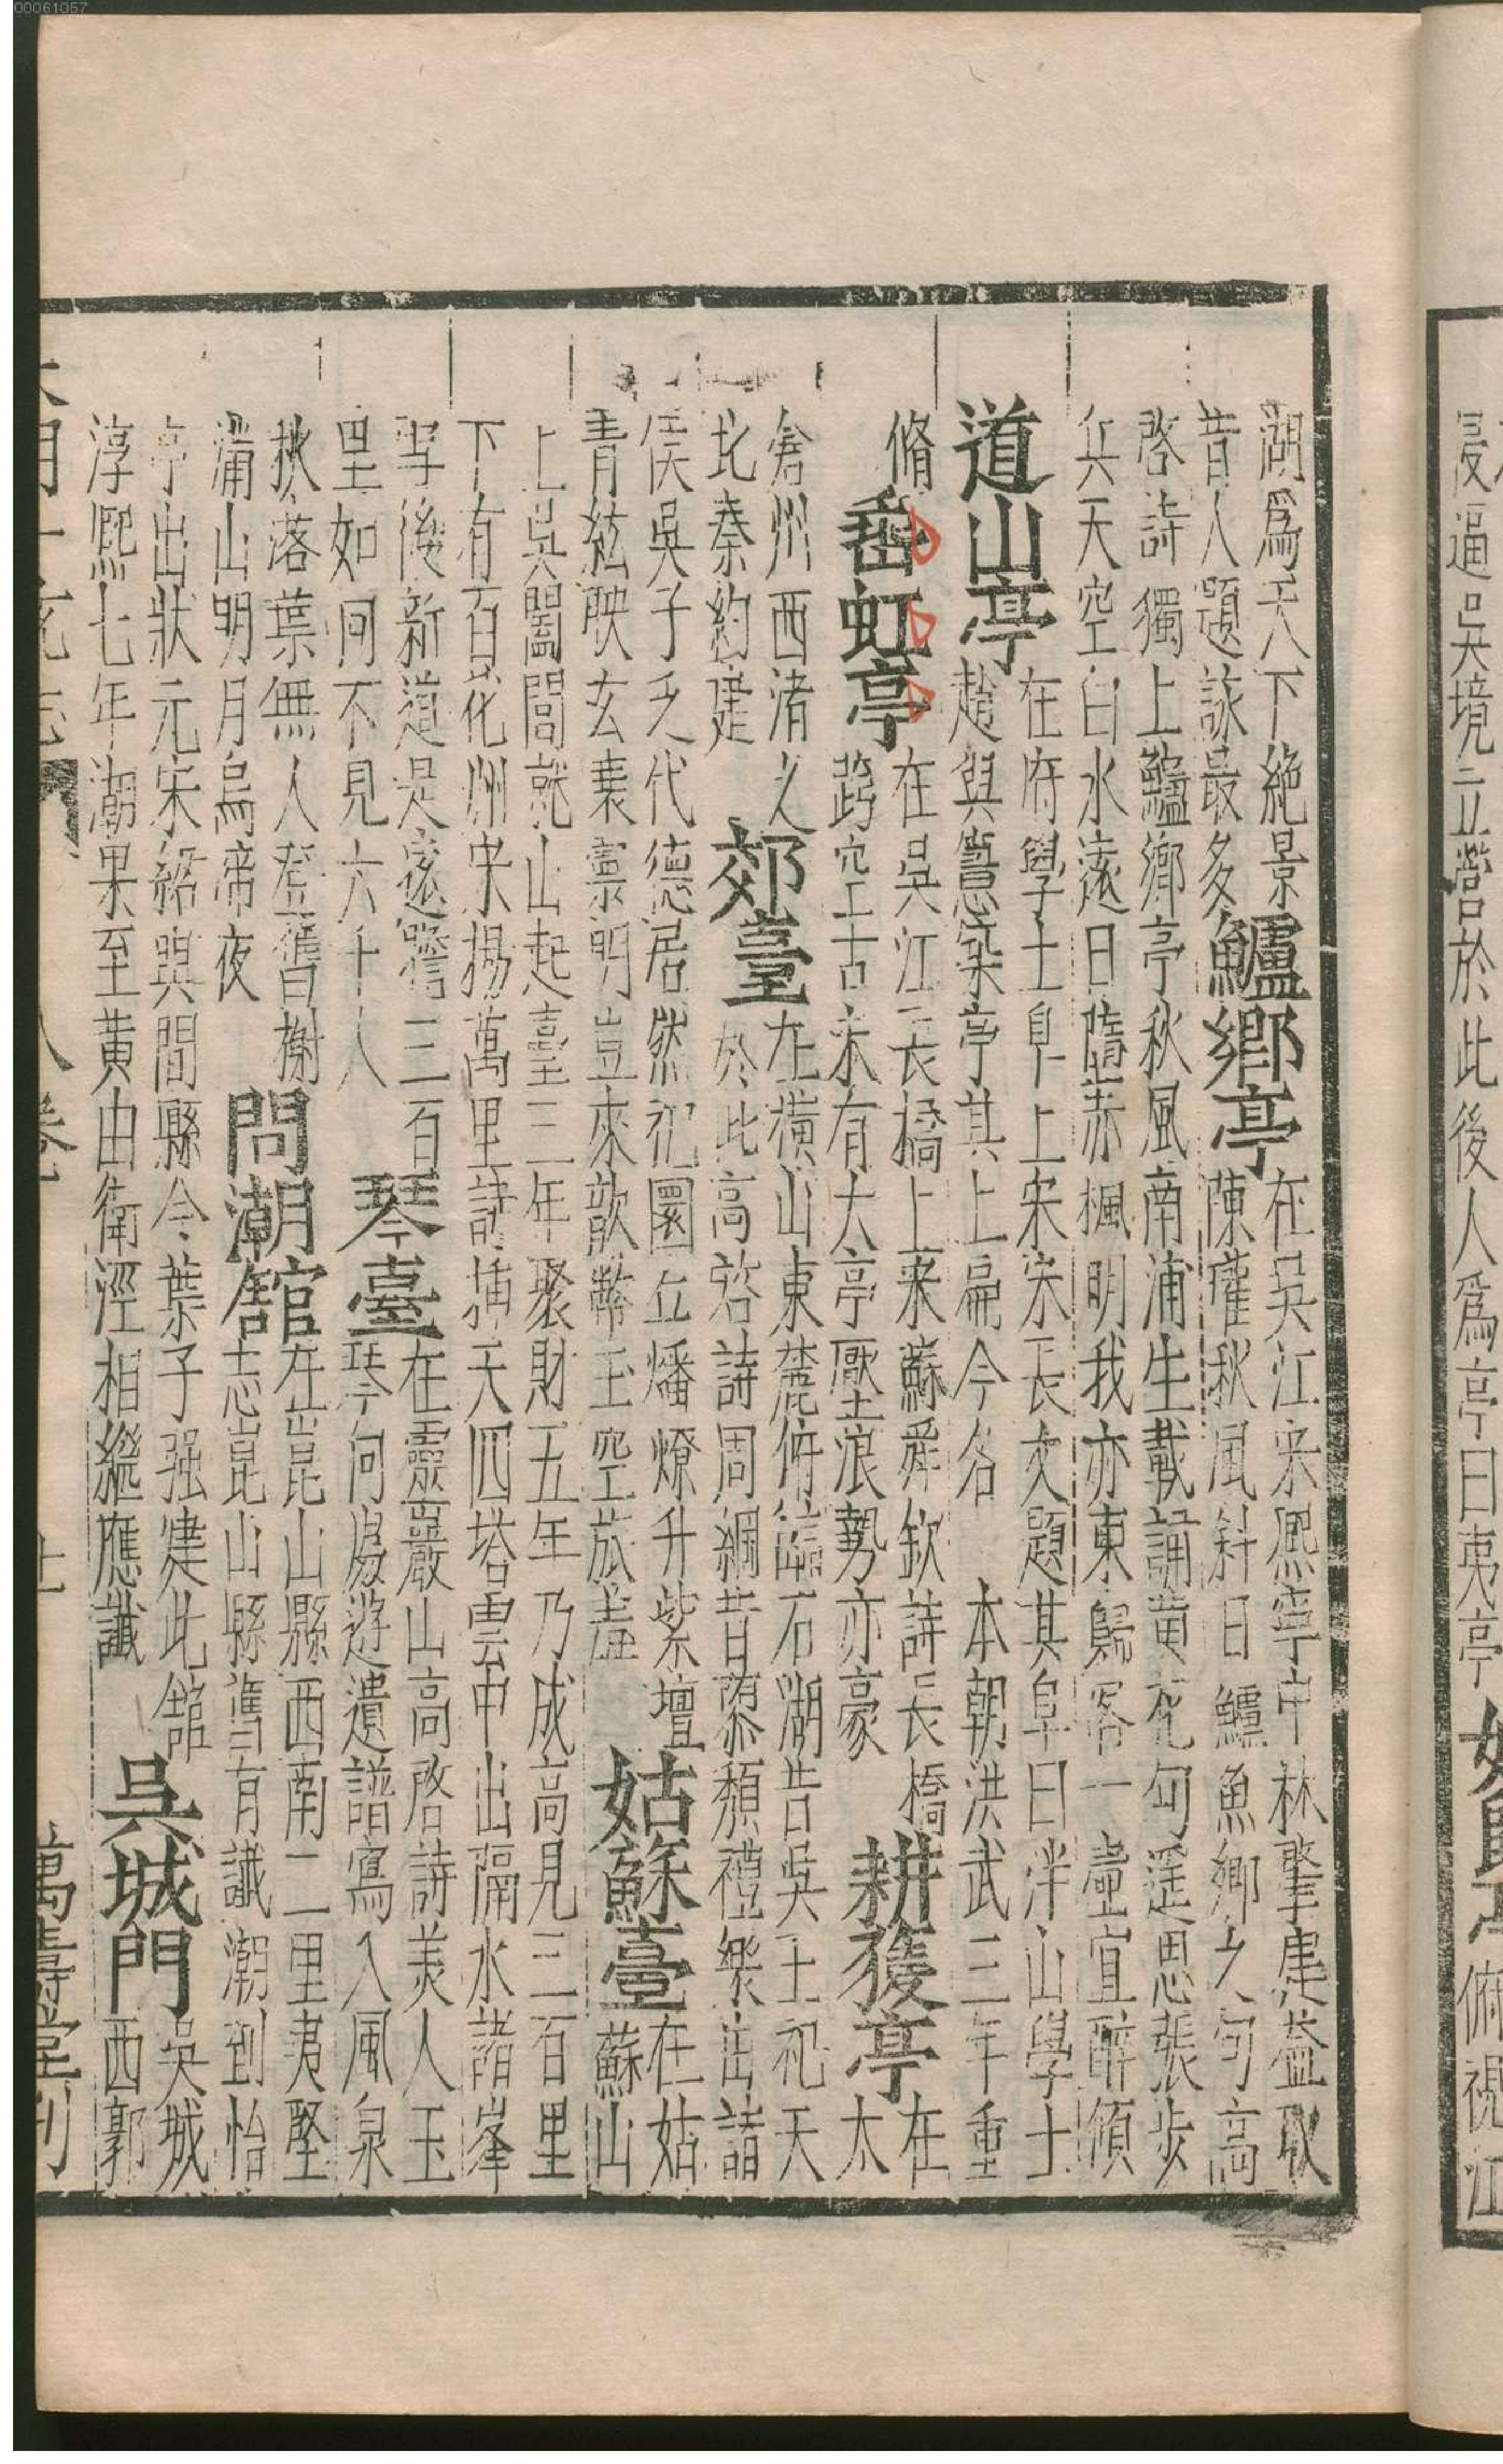 浸逼吳境立營於此後人爲亭曰夷亭
俯視江
湖爲天下絶景
昔人題詠最多
鱸鄉亭
在吳江宋熙寧中林肇建蓋取
陳瓘秋風斜日鱸魚鄉之句高
啓詩獨上鱸鄉亭秋風南浦生載誦黄花句遥思張步
兵天空白水遠日隨赤楓明我亦東歸客一壺宜醉傾
道山亭
在府學土阜上宋宋長文題其阜曰泮山學士
趙與𥲅築亭其上扁今名 本朝洪武三年重
脩
垂虹亭
在吳江長橋上宋蘇舜欽詩長橋
跨空古未有大亭壓浪勢亦豪
耕穫亭
在
太
倉州西渚之
北秦約建
郊臺
在橫山東麓俯臨石湖昔吳王祀天
於此高啓詩周綱昔頽禮樂出諸
侯吳子乏代德居然祀圜丘燔燎升紫壇
青紘映玄裘禀明豈來歆幣玉空旅羞
姑蘇臺
在姑
蘇山
上吳闔閭就山起臺三年聚財五年乃成高見三百里
下有百花洲宋楊萬里詩插天四塔雲中出隔水諸峯
雪後新道是遠瞻三百
里如何不見六千人
琴臺
在靈巖山高啓詩美人玉
琴何處遊遺譜寫入風泉
秋落葉無人登舊榭
滿山明月烏啼夜
問潮舘
在崑山縣西南二里夷堅
志崑山縣舊有讖潮到怡
亭出狀元宋紹興間縣令葉子强建此舘
淳熙七年潮果至黄由衛涇相繼應讖
吳城門
吳城
西郭
大明一統志 八卷 廿 萬壽堂刊
00061057